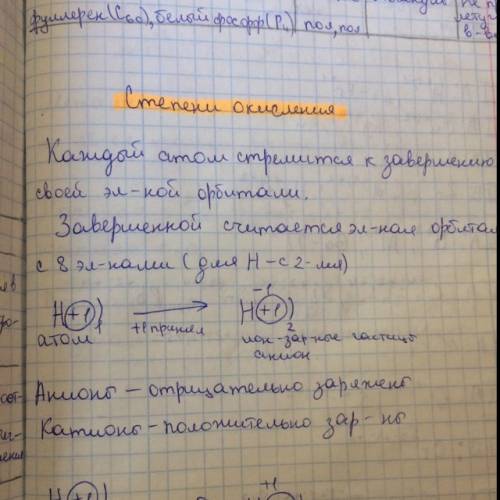 фуллерен(C60), белый фосфор(P4) пол, пол
Степени окисления
Каждый атом стремится к завершению
своей эл-ной орбитали.
Завершенной считается эл-ная орбитал
с 8 эл-нами (для H-с 2-мя)
-1
H(+1) 1 → H(+1) 2
атом +ē принял ион-зар-ные частицы
анион
Анионы – отрицательно заряжены
Катионы – положительно зар-ны
+1
H(+1) H(+1)